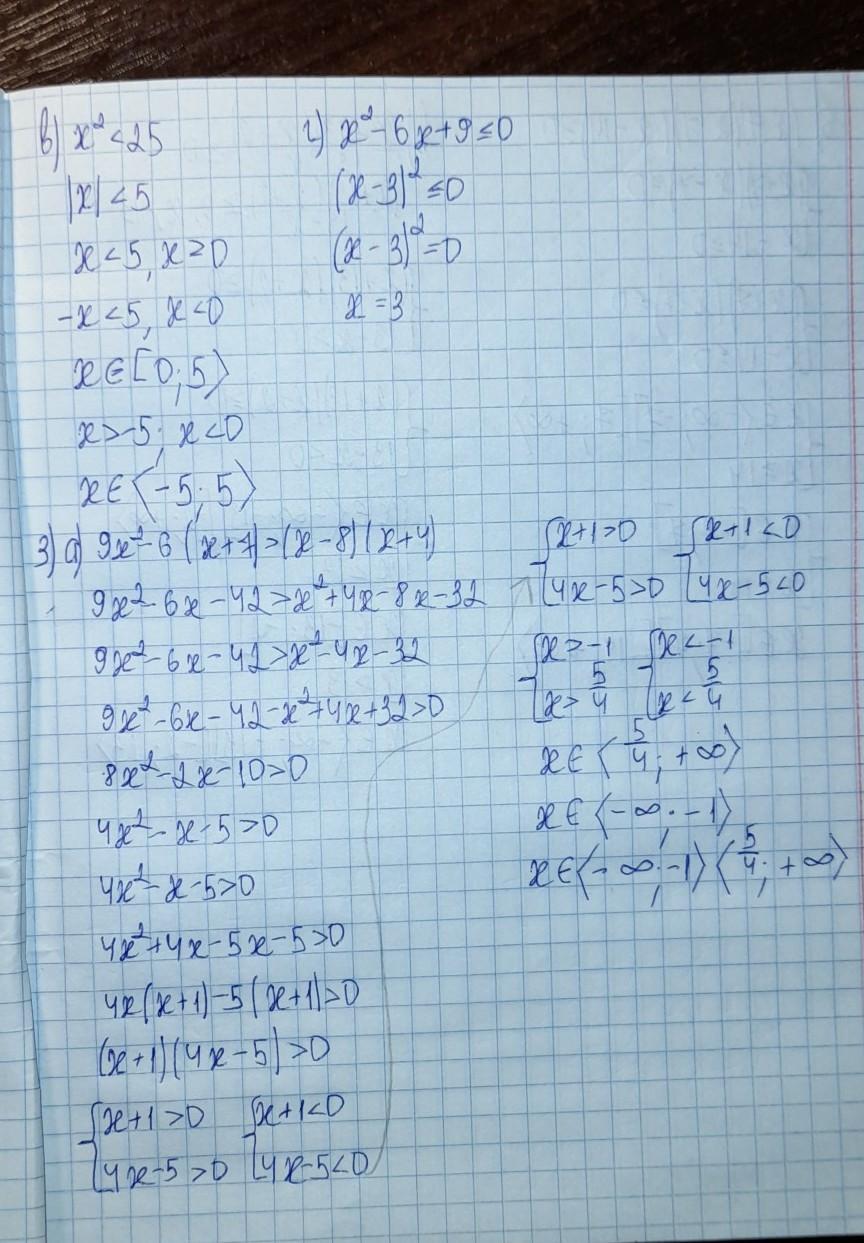 в) x² < 25
|x| < 5
x < 5, x ≥ 0
-x < 5, x < 0
x ∈ [0; 5⟩
x > -5; x < 0
x ∈ ⟨-5; 5⟩
г) x² - 6x + 9 ≤ 0
(x - 3)² ≤ 0
(x - 3)² = 0
x = 3
3) а) 9x² - 6(x + 7) > (x - 8)(x + 4)
9x² - 6x - 42 > x² + 4x - 8x - 32
9x² - 6x - 42 > x² - 4x - 32
9x² - 6x - 42 - x² + 4x + 32 > 0
8x² - 2x - 10 > 0
4x² - x - 5 > 0
4x² - x - 5 > 0
4x² + 4x - 5x - 5 > 0
4x(x + 1) - 5(x + 1) > 0
(x + 1)(4x - 5) > 0
{x + 1 > 0 {x + 1 < 0
4x - 5 > 0 4x - 5 < 0
{x + 1 > 0 {x + 1 < 0
4x - 5 > 0 4x - 5 < 0
{x > -1 {x < -1
x > 5/4 x < 5/4
x ∈ ⟨5/4; +∞⟩
x ∈ ⟨-∞; -1⟩
x ∈ ⟨-∞; -1⟩ ⟨5/4; +∞⟩